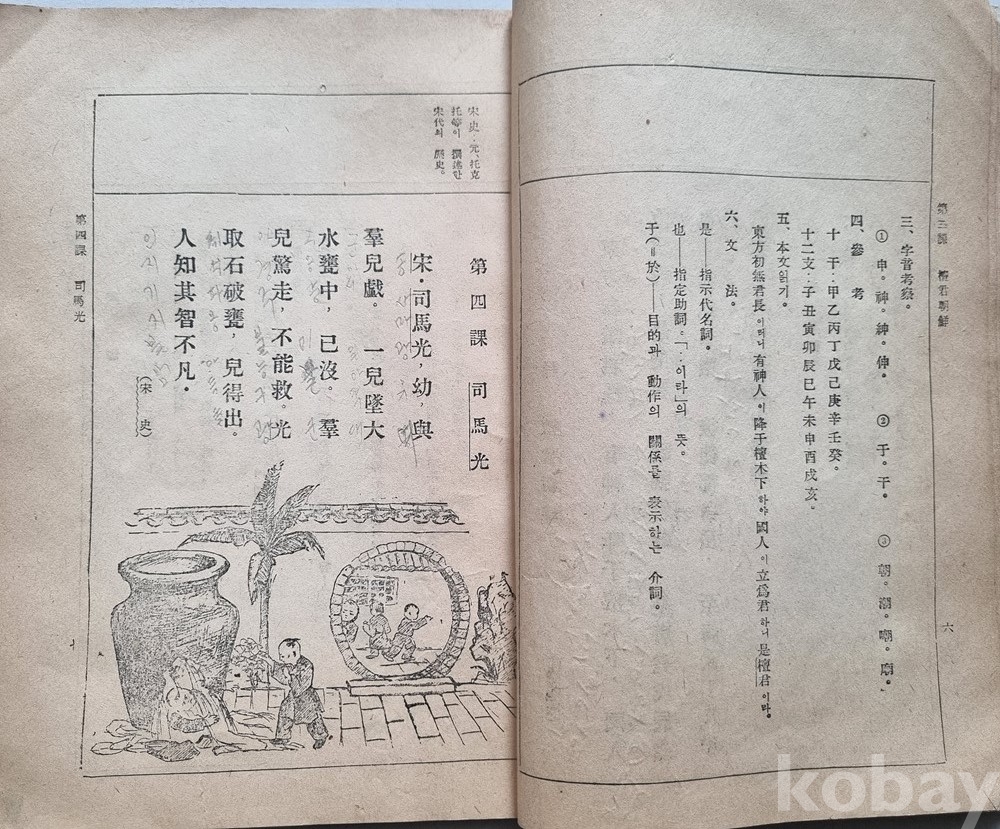 第三課 檀君朝鮮
六
三、字音考察。
① 申。神。紳。伸。 ② 于。干。 ③ 朝。潮。嘲。廟。
四、參 考
十 干：甲乙丙丁戊己庚辛壬癸。
十二支：子丑寅卯辰巳午未申酉戌亥。
五、本文읽기。
東方初無君長이러니 有神人이 降于檀木下하야 國人이 立爲君하니 是檀君이라。
六、文 法。
是──指示代名詞。
也──指定助詞。「…이라」의 뜻。
于(=於)──目的과 動作의 關係를 表示하는 介詞。
宋史：元、托克
托等이 撰述한
宋代의 歷史。
第四課 司馬光
宋·司馬光，幼，與
羣兒戲。 一兒墜大
水甕中，已沒。 羣
兒驚走，不能救。光
取石破甕，兒得出。
人知其智不凡。
(宋史)
第四課 司馬光
kobay